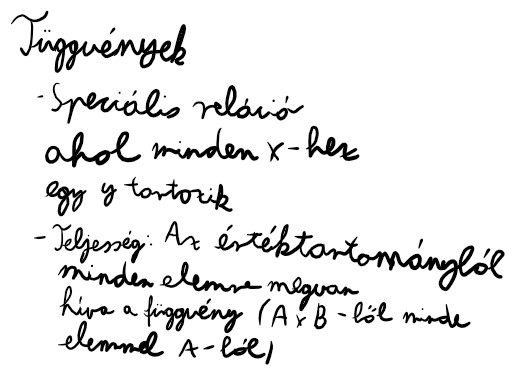 Függvények
- Speciális reláció
ahol minden x-hez
egy y tartozik
- Teljesség: Az értéktartományból
minden elemre megvan
hívva a függvény (A x B -ből minde
elemmel A-ból)